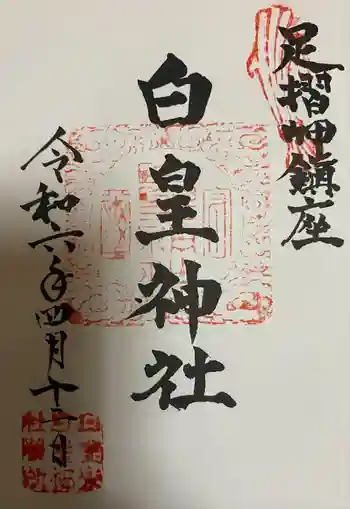 足摺岬鎮座
白皇神社
令和六年四月十二日